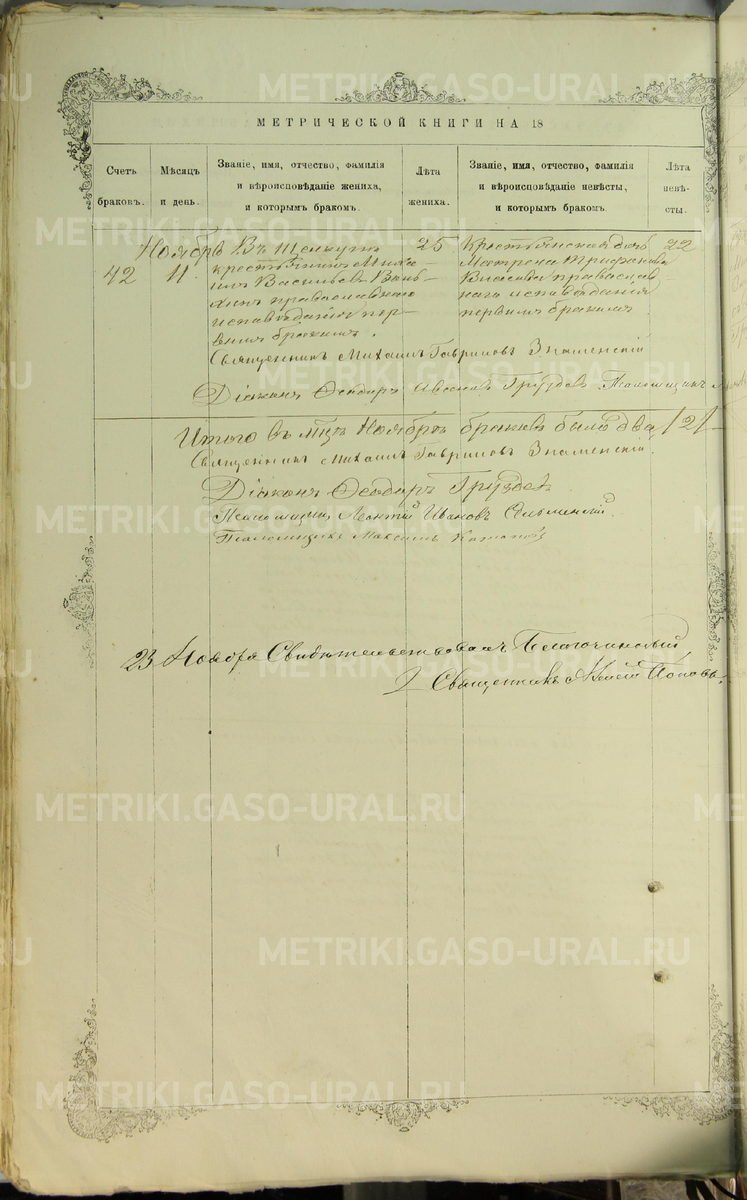 МЕТРИЧЕСКОЙ КНИГИ НА 18
Счетъ браковъ.
Мѣсяцъ и день.
Званіе, имя, отчество, фамилія и вѣроисповѣданіе жениха, и которымъ бракомъ.
Лѣта жениха.
Званіе, имя, отчество, фамилія и вѣроисповѣданіе невѣсты, и которымъ бракомъ.
Лѣта невѣсты.
42
Ноябрь
11
крестьянинъ Миха
илъ Васильевъ
хинъ православнаго
исповѣданія пер-
вымъ бракомъ.
25
Крестьянская дочь
Матрена Трифонова
Власова православ
наго исповѣданія
первымъ бракомъ
22
Священникъ Михаилъ Гавриловъ Знаменскій
Діаконъ Ѳеодоръ Груздевъ Псаломщикъ
Итого въ мцѣ Ноябрѣ браковъ было два /2/
Священникъ Михаилъ Гавриловъ Знаменскій.
Діаконъ Ѳеодоръ Груздевъ
Псаломщикъ Леонтій Ивановъ
Псаломщикъ Максимъ
23 Ноября Свидѣтельствовалъ Благочинный
Священникъ Поповъ.
METRIKI.GASO-URAL.RU